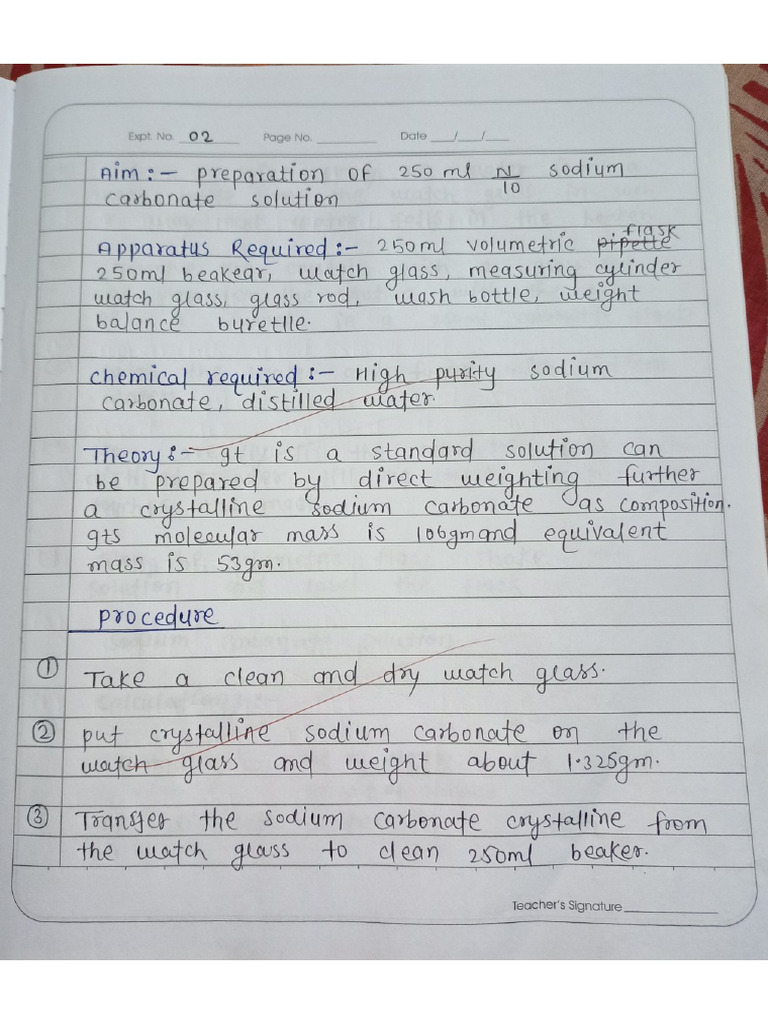 Expt. No. 02 Page No. Date / /
Aim :- preparation of 250 ml N/10 sodium
carbonate solution
Apparatus Required :- 250ml volumetric pipette flask
250ml beakear, watch glass, measuring cylinder
watch glass, glass rod, wash bottle, weight
balance buretlle.
chemical required :- High purity sodium
carbonate, distilled water.
Theory :- gt is a standard solution can
be prepared by direct weighting further
a crystalline sodium carbonate as composition.
gts molecular mass is 106gm and equivalent
mass is 53gm.
procedure
① Take a clean and dry watch glass.
② put crystalline sodium carbonate on the
watch glass and weight about 1.325gm.
③ Transfer the sodium carbonate crystalline from
the watch glass to clean 250ml beaker.
Teacher's Signature